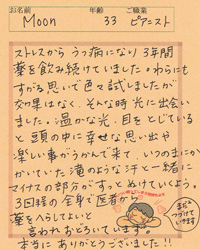 お名前 Moon 年齢 33 ご職業 ピアニスト
ストレスから うつ病になり 3年間
薬を飲み続けていました。わらにも
すがる思いで色々試しましたが
効果はなく、そんな時光に出会い
ました。温かな光。目をとじている
と頭の中に幸せな思い出や
楽しい事がうかんで来て、いつのまにか
かいていた滝のような汗と一緒に
マイナスの部分がすっとぬけていくよう。
3回経の全身で医者から
薬をへらしてよいと
言われおどろいています。
本当に ありがとうございました!!
まだ
つづけて
いきます